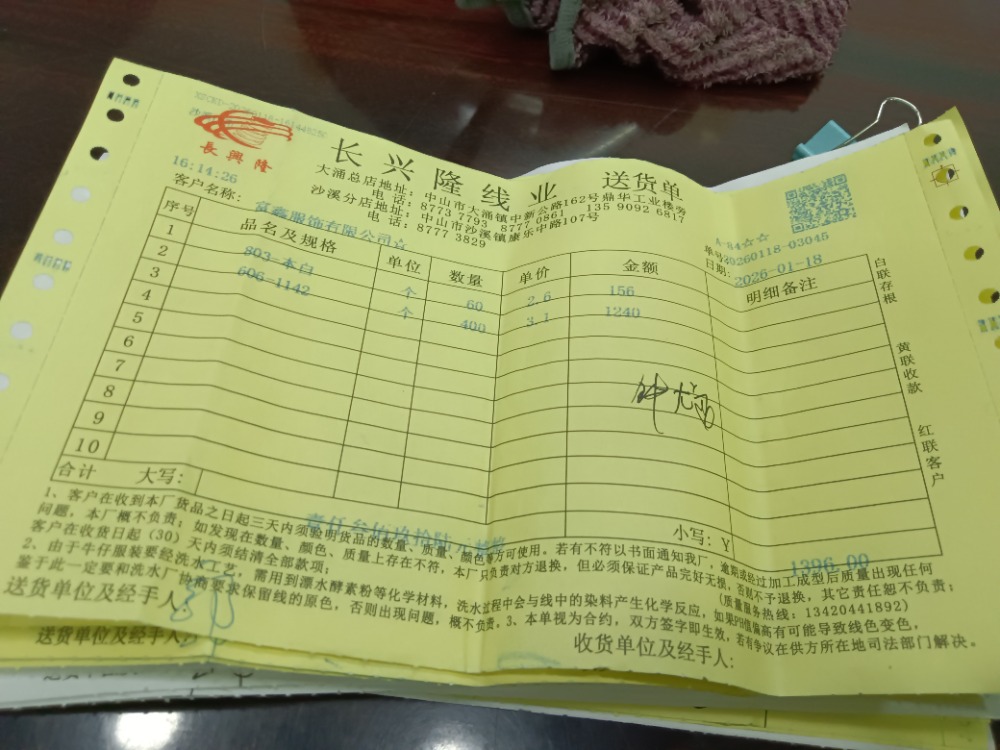 長興隆
16:14:26
长兴隆线业 送货单
大涌总店地址：中山市大涌镇中新公路162号鼎华工业楼旁
电话：8773 7793 8777 0861 135 9092 6817
沙溪分店地址：中山市沙溪镇康乐中路107号
电话：8777 3829
客户名称：富鑫服饰有限公司☆
A-84☆☆
单号20260118-03045
日期：2026-01-18
序号 品名及规格 单位 数量 单价 金额 明细备注
1 803-本白 个 60 2.6 156
2 606-1142 个 400 3.1 1240
3
4
5
6
7
8
9
10
合计 大写：壹仟叁佰玖拾陆元整 小写：Y 1396.00
白联存根 黄联收款 红联客户
1、客户在收到本厂货品之日起三天内须验明货品的数量、质量、颜色等方可使用，若有不符以书面通知我厂，逾期或经过加工成型后质量出现任何
问题，本厂概不负责；如发现在数量、颜色、质量上存在不符，本厂只负责对方退换，但必须保证产品完好无损，否则不予退换，其它责任恕不负责；
客户在收货日起（30）天内须结清全部款项； (质量服务热线：13420441892)
2、由于牛仔服装要经洗水工艺，需用到漂水酵素粉等化学材料，洗水过程中会与线中的染料产生化学反应，如果PH值偏高有可能导致线色变色，
鉴于此一定要和洗水厂协商要求保留线的原色，否则出现问题，概不负责。3、本单视为合约，双方签字即生效，若有争议在供方所在地司法部门解决。
送货单位及经手人： 收货单位及经手人：
送货单位及经手人